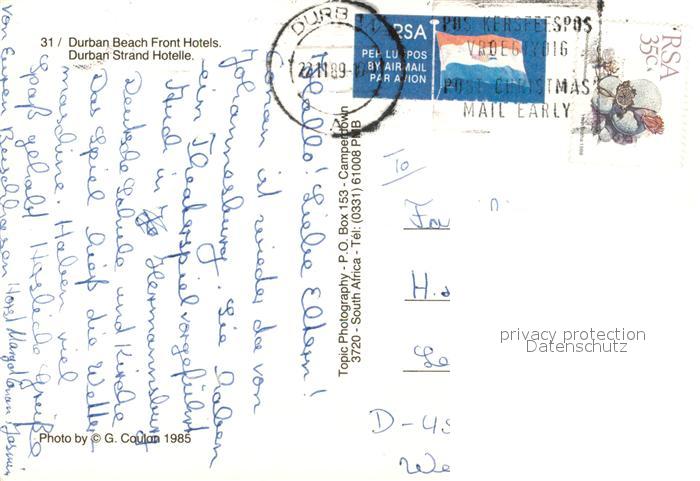 31 / Durban Beach Front Hotels.
Durban Strand Hotelle.
DURB
22 11 89
RSA
PER LUGPOS
BY AIRMAIL
PAR AVION
POS KERSFEESPOS
VROEGTYDIG
POST CHRISTMAS
MAIL EARLY
RSA
35c
Hallo! Liebe Eltern!
ist wieder da von
Johannesburg. Sie haben
ein Theaterspiel vorgeführt
Auch in Hermannsburg
Deutsche Schule und Kirche
Das Spiel hieß die Wetter
maschine. Haben viel
Spaß gehabt Herzliche Grüße
von Euren
Horst Margot
Topic Photography - P.O. Box 153 - Camperdown
3720 - South Africa - Tel: (0331) 61008 PMB
To
D-4
We
privacy protection
Datenschutz
Photo by © G. Coulon 1985